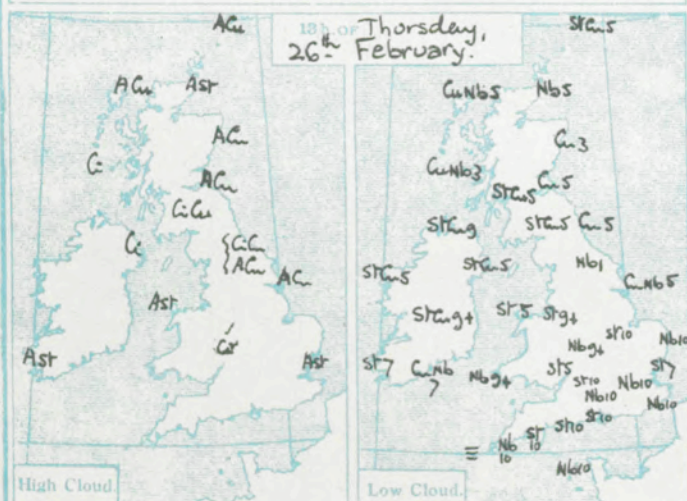 13h OF Thursday,
26th February.
ACu
ACu Ast
ACu
Ci
ACu
CiCu
Ci
CiCu
ACu
ACu
Ast
Ast
Ast
High Cloud.
StCu5
CuNb5 Nb5
Cu3
CuNb3
StCu5 Cu5
StCu9 StCu5 Cu5
StCu5 StCu5 Nb1
CuNb5
StCu9+ St5 St9+
St10 Nb10
Nb9+
St7 CuNb7 Nb9+ St5 St7
St10 Nb10
Nb10 Nb10
St10 St10
St10
Nb10
Nb10
Low Cloud.